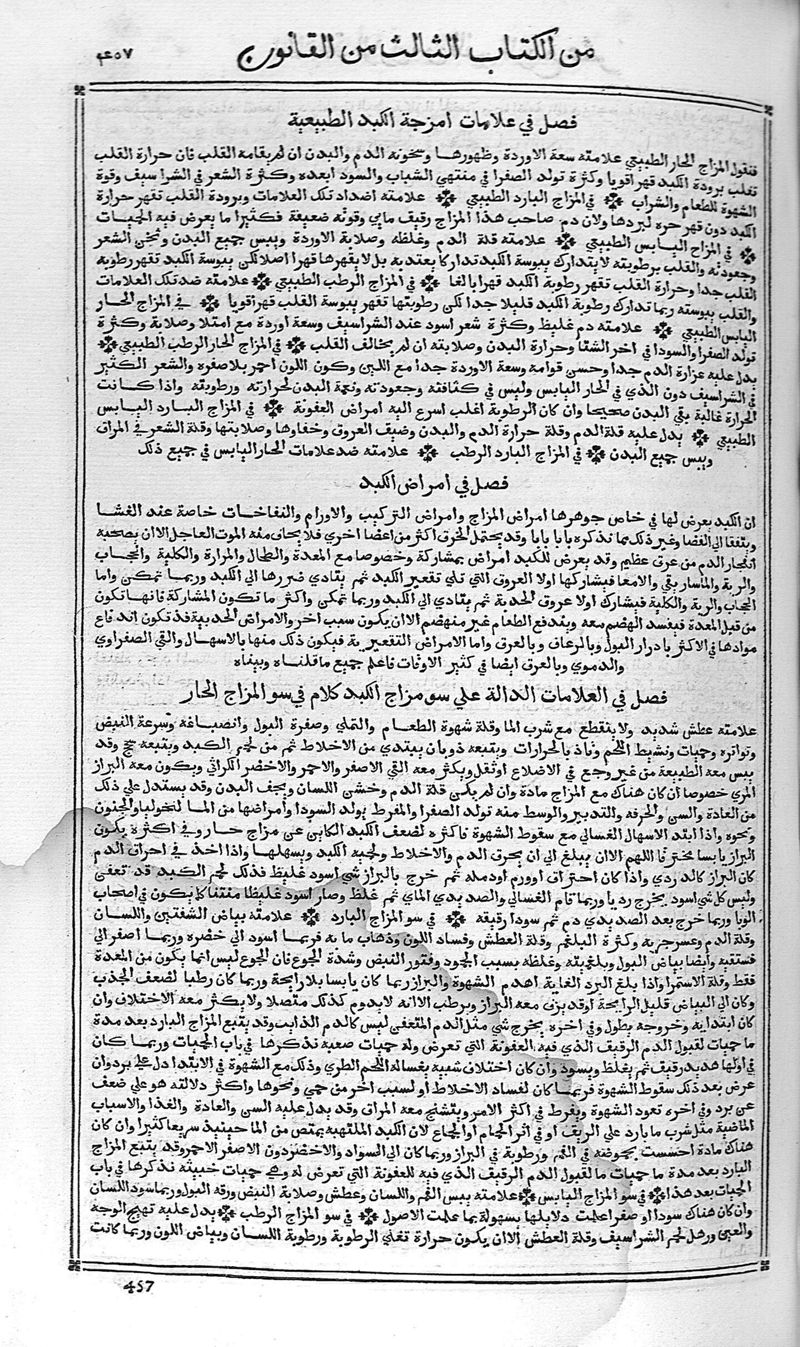 من الكتاب الثالث من القانون
٤٥٧
فصل في علامات امزجة الكبد الطبيعية
فنقول المزاج الحار الطبيعي علامته سعة الاوردة وظهورها وسخونة الدم والبدن ان لم يقامه القلب فان حرارة القلب
تغلب برودة الكبد قهرا قويا وكثرة تولد الصفرا في منتهي الشباب والسودا بعده وكثرة الشعر في الشراسيف وقوة
الشهوة للطعام والشراب في المزاج البارد الطبيعي علامته اضداد تلك العلامات وبرودة القلب تقهر حرارة
الكبد دون قهر حره لبردها ولان دم صاحب هذا المزاج رقيق مايي وقوته ضعيفة فكثيرا ما يعرض فيه الحميات
في المزاج اليابس الطبيعي علامته قلة الدم وغلظه وصلابة الاوردة ويبس جميع البدن وثخن الشعر
وجعودته والقلب برطوبته لا يتدارك يبوسة الكبد تداركا يعتد به بل لا يقهرها قهرا اصلا لكن يبوسة الكبد تقهر رطوبة
القلب جدا وحرارة القلب تقهر رطوبة الكبد قهرا بالغا في المزاج الرطب الطبيعي علامته ضد تلك العلامات
والقلب بيبوسته ربما تدارك رطوبة الكبد قليلا جدا لكن رطوبتها تقهر يبوسة القلب قهرا قويا في المزاج الحار
اليابس الطبيعي علامته دم غليظ وكثرة شعر اسود عند الشراسيف وسعة اوردة مع امتلا وصلابة وكثرة
تولد الصفرا والسودا في اخر الشتا وحرارة البدن وصلابته ان لم يخالف القلب في المزاج الحار الرطب الطبيعي
يدل عليه غزارة الدم جدا وحسن قوامه وسعة الاوردة جدا مع اللين وكون اللون احمر بلا صفره والشعر الكثير
في الشراسيف دون الذي في الحار اليابس وليس في كثافته وجعودته ونعمة البدن لحرارته ورطوبته واذا كانت
الحرارة غالبة بقي البدن صحيحا وان كان الرطوبة اغلب اسرع اليه امراض العفونة في المزاج البارد اليابس
الطبيعي يدل عليه قلة الدم وقلة حرارة الدم والبدن وضيق العروق وخفاوها وصلابتها وقلة الشعر في المراق
ويبس جميع البدن في المزاج البارد الرطب علامته ضد علامات الحار اليابس في جميع ذلك
فصل في امراض الكبد
ان الكبد يعرض لها في خاص جوهرها امراض المزاج وامراض التركيب والاورام والنفاخات خاصة عند الغشا
ويتفقا الي الفضا وغير ذلك مما نذكره بابا بابا وقد يحتمل الخرق اكثر من اعضا اخري فلا يخاف منه الموت العاجل الا ان يصحبه
انفجار الدم من عرق عظيم وقد يعرض للكبد امراض بمشاركة وخصوصا مع المعدة والطحال والمرارة والكلية والحجاب
والرية والماساريقي والامعا فيشاركها اولا العروق التي تلي تقعير الكبد ثم يتادي ضررها الي الكبد وربما تمكن واما
الحجاب والرية والكلية فيشارك اولا عروق الحدبة ثم يتادي الي الكبد وربما تمكن واكثر ما تكون المشاركة فانها تكون
من قبل المعدة فيفسد الهضم معه ويندفع الطعام غير منهضم الا ان يكون سبب اخر والامراض الحدبية قد تكون اندفاع
موادها في الاكثر بادرار البول وبالرعاف وبالعرق واما الامراض التقعيرية فيكون ذلك منها بالاسهال والقي الصفراوي
والدموي وبالعرق ايضا في كثير الاوقات فاعلم جميع ما قلناه وبيناه
فصل في العلامات الدالة علي سو مزاج الكبد كلام في سو المزاج الحار
علامته عطش شديد ولا ينقطع مع شرب الما وقلة شهوة الطعام والتهاب وصفرة البول وانصباغه وسرعة النبض
وتواتره وحميات وتشيط اللحم وتاذ بالحرارات ويتبعه ذوبان يبتدي من الاخلاط ثم من لحم الكبد ويتبعه سحج وقد
يبس معه الطبيعة من غير وجع في الاضلاع او ثقل ويكثر معه القي الاصفر والاحمر والاخضر الكراثي ويكون معه البراز
المري خصوصا ان كان هناك مع المزاج مادة وان لم يكن قلة الدم وخشن اللسان ونحف البدن وقد يستدل علي ذلك
من العادة والسن والحرفه والتدبير والوسط منه تولد الصفرا والمفرط يولد السودا وامراضها من الما لنخوليا والجنون
ونحوه واذا ابتد الاسهال الغسالي مع سقوط الشهوة فاكثره لضعف الكبد الكاين عن مزاج حار وفي اكثره يكون
البراز يابسا محترقا اللهم الا ان يبلغ الي ان يحرق الدم والاخلاط ولحمة الكبد ويسهلها واذا اخذ في احراق الدم
كان البراز كالدردي واذا كان احتراق او ورم او دمله ثم خرج بالبراز شي اسود غليظ فذلك لحم الكبد قد تعفن
وليس كل شي اسود يخرج رديا وربما قام الغسالي والصديدي المايي ثم غلظ وصار اسود غليظا منتنا كما يكون في اصحاب
الوبا وربما خرج بعد الصديدي دم ثم سودا رقيقه في سو المزاج البارد علامته بياض الشفتين واللسان
وقلة الدم وعسر جريه وكثرة البلغم وقلة العطش وفساد اللون وذهاب مايه فربما اسود الي خضره وربما اصفر الي
فستقيه وايضا بياض البول وبلغميته وغلظه بسبب الجمود وفتور النبض وشدة الجوع فان الجوع ليس انما يكون من المعدة
فقط وقلة الاستمرا واذا بلغ البرد الغاية اهدم الشهوة والبراز ربما كان يابسا بلا رايحة وربما كان رطبا لضعف الجذب
وكان الي البياض قليل الرايحة او قد يرق معه البراز ويرطب الا انه لا يدوم كذلك متصلا ولا يكثر معه الاختلاف وان
كان ابتدايه وخروجه يطول وفي اخره يخرج شي مثل الدم المتعفن ليس كالدم الذايب وقد يتبع المزاج البارد بعد مدة
ما حميات لقبول الدم الرقيق الذي فيه العفونة التي تعرض وله حميات صعبه نذكرها في باب الحميات وربما كان
في اولها صديد رقيق ثم يغلظ ويسود وان كان اختلاف شبيه بغسالة اللحم الطري وذلك مع الشهوة في الابتدا دل علي برد وان
عرض بعد ذلك سقوط الشهوة فربما كان لفساد الاخلاط او لسبب اخر من حمي ونحوها واكثر دلالته هو علي ضعف
عن برد وفي اخره تعود الشهوة ويفرط في اكثر الامر ويتشنج معه المراق وقد يدل عليه السن والعادة والغذا والاسباب
الماضية مثل شرب ما بارد علي الريق او في اثر الحمام او الجماع لان الكبد الملتهبه يمتص من الما حينيذ سريعا كثيرا وان كان
هناك مادة احسست بحموضه في الفم ورطوبة في البراز وربما كان الي السواد والاخضر دون الاصفر الاحمر وقد يتبع المزاج
البارد بعد مدة ما حميات ما لقبول الدم الرقيق الذي فيه للعفونة التي تعرض له وهي حميات خبيثه نذكرها في باب
الحميات بعد هذا في سو المزاج اليابس علامته يبس الفم واللسان وعطش وصلابة النبض ورقه البول وربما سود اللسان
وان كان هناك سودا او صفرا علمت دلايلها بسهولة بما علمت الاصول في سو المزاج الرطب يدل عليه تهيج الوجه
والعين ورهل لحم الشراسيف وقلة العطش الا ان يكون حرارة تغلي الرطوبة ورطوبة اللسان وبياض اللون وربما كانت
457